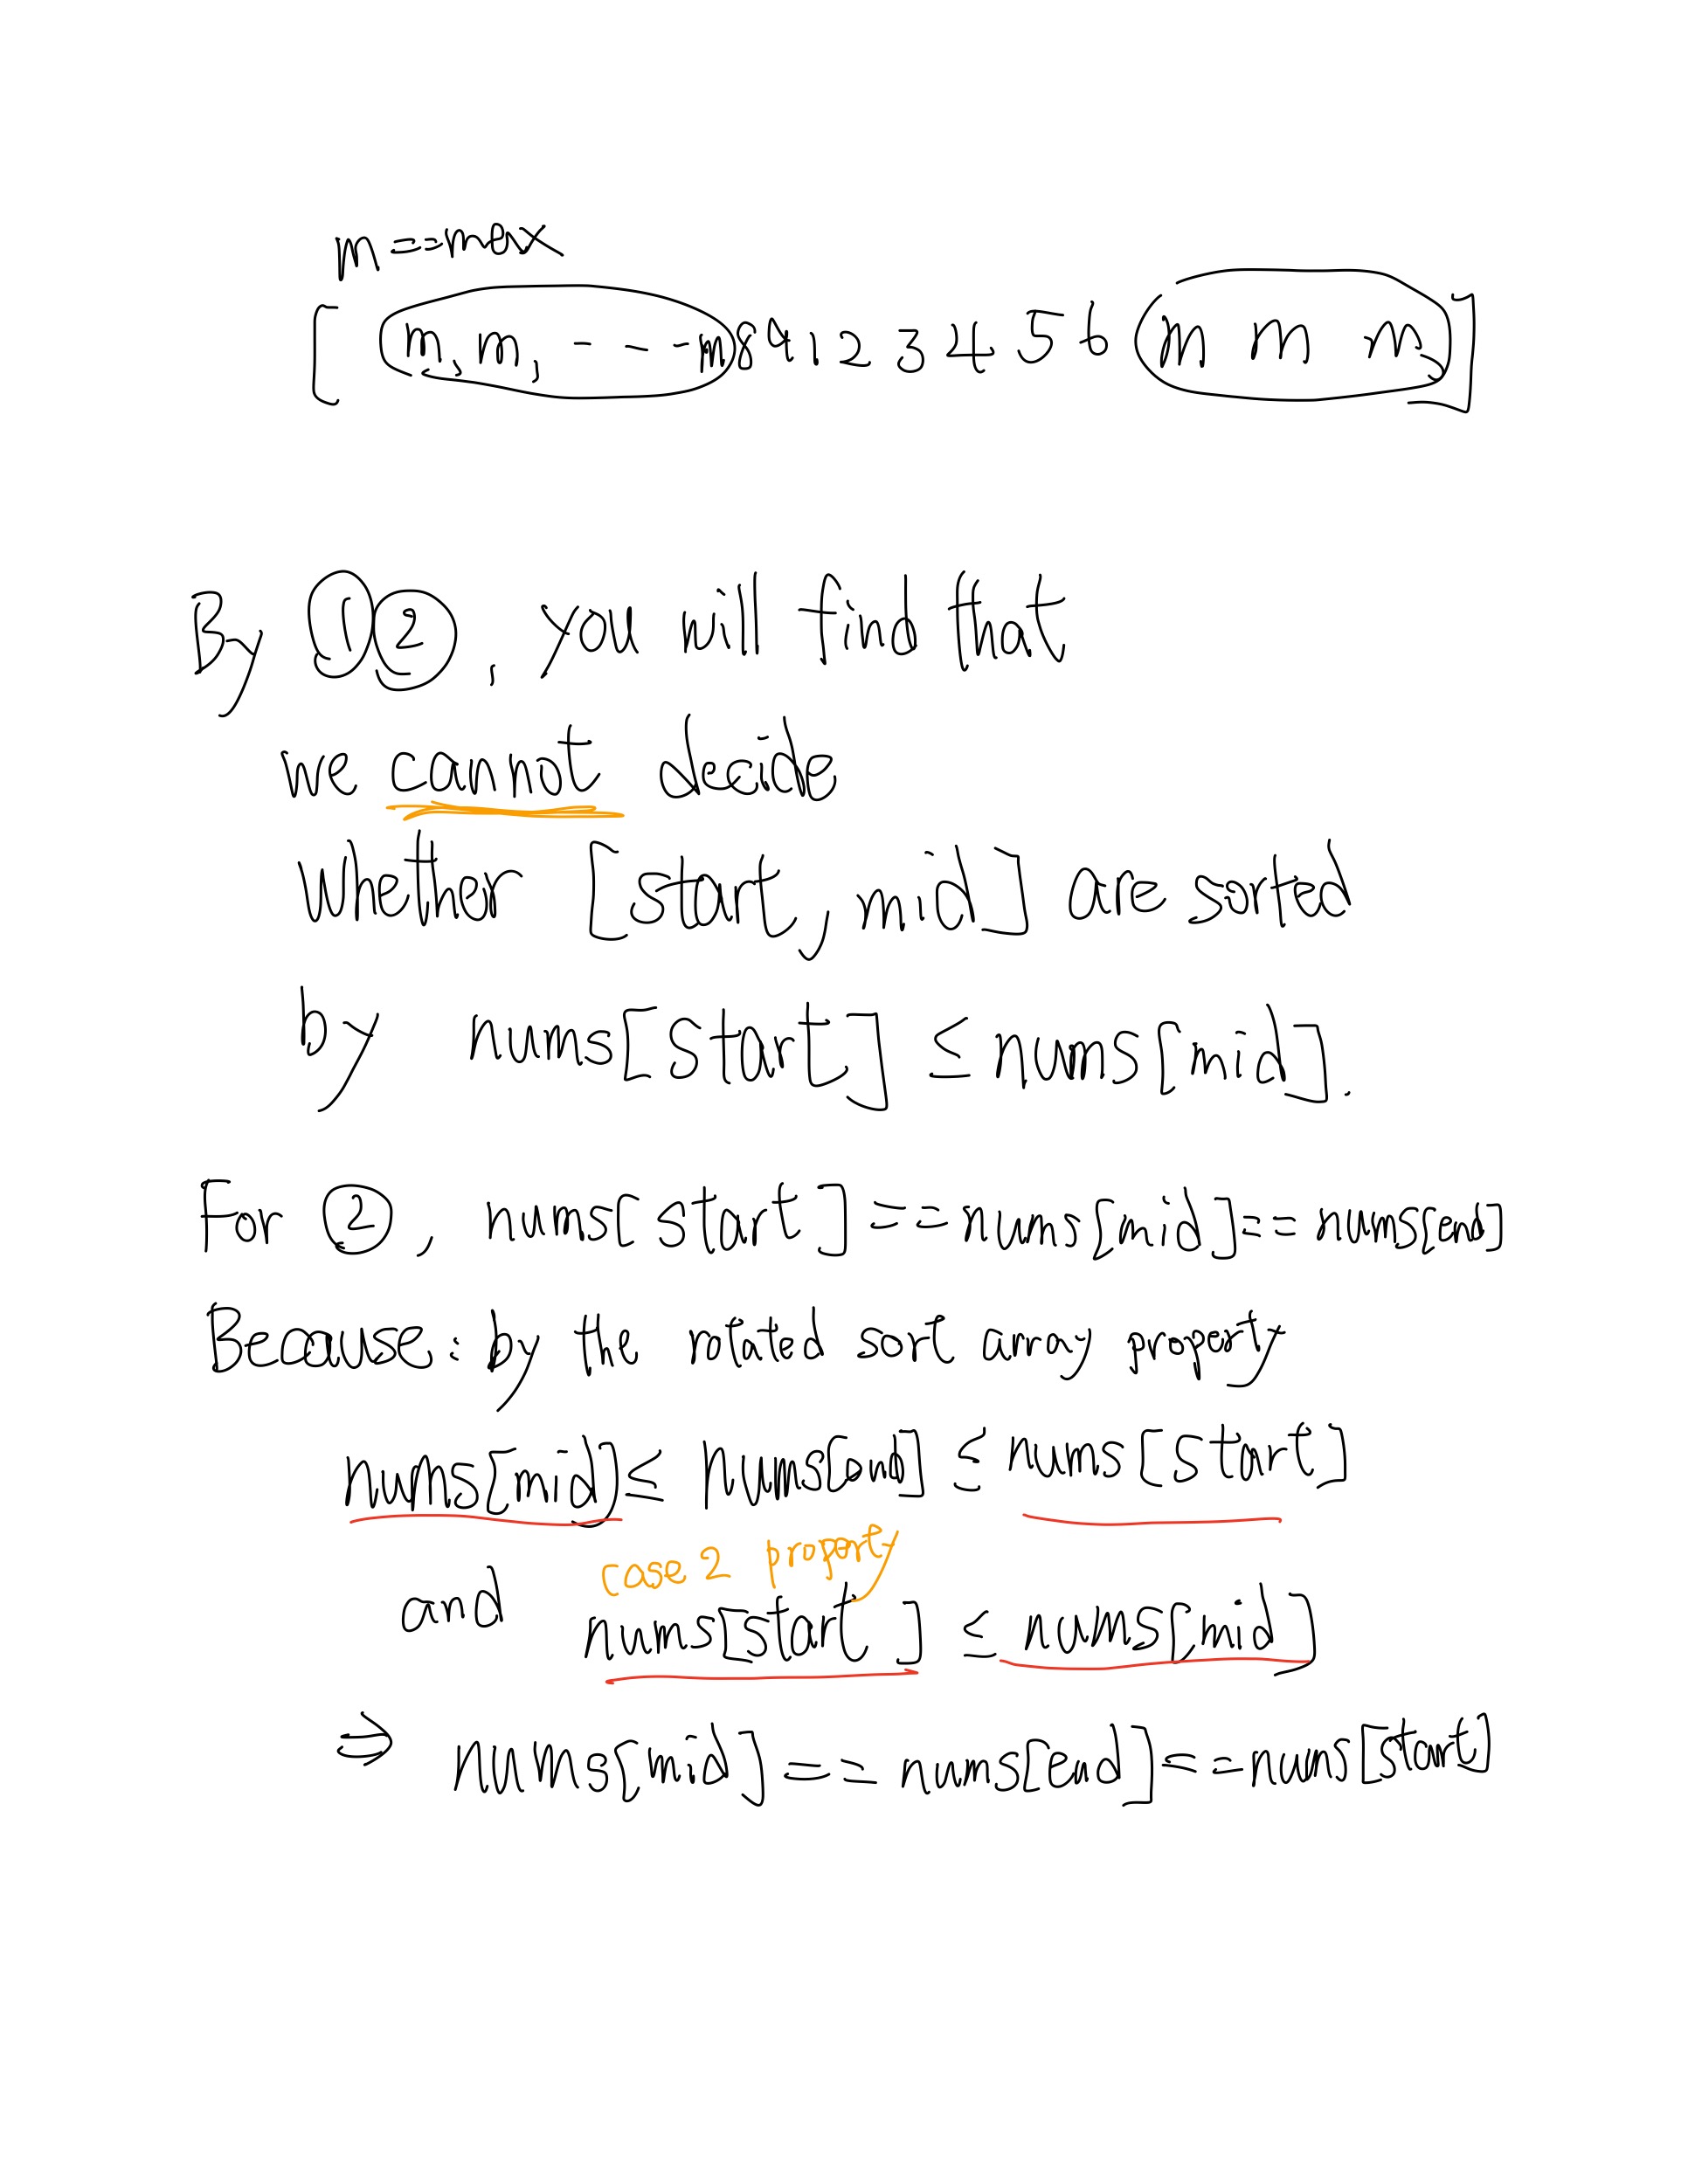 m == max
[ m, m, - - - m 8 9 1 2 3 4 5 6 m m m ]
By ① ②, you will find that
we cannot decide
whether [start, mid] are sorted
by nums[start] ≤ nums[mid].
For ②, nums[start] == nums[mid] == nums[end]
Because: by the rotated sort array property
nums[mid] ≤ nums[end] ≤ nums[start]
case 2 property
and nums[start] ≤ nums[mid]
⇒ nums[mid] == nums[end] == nums[start]